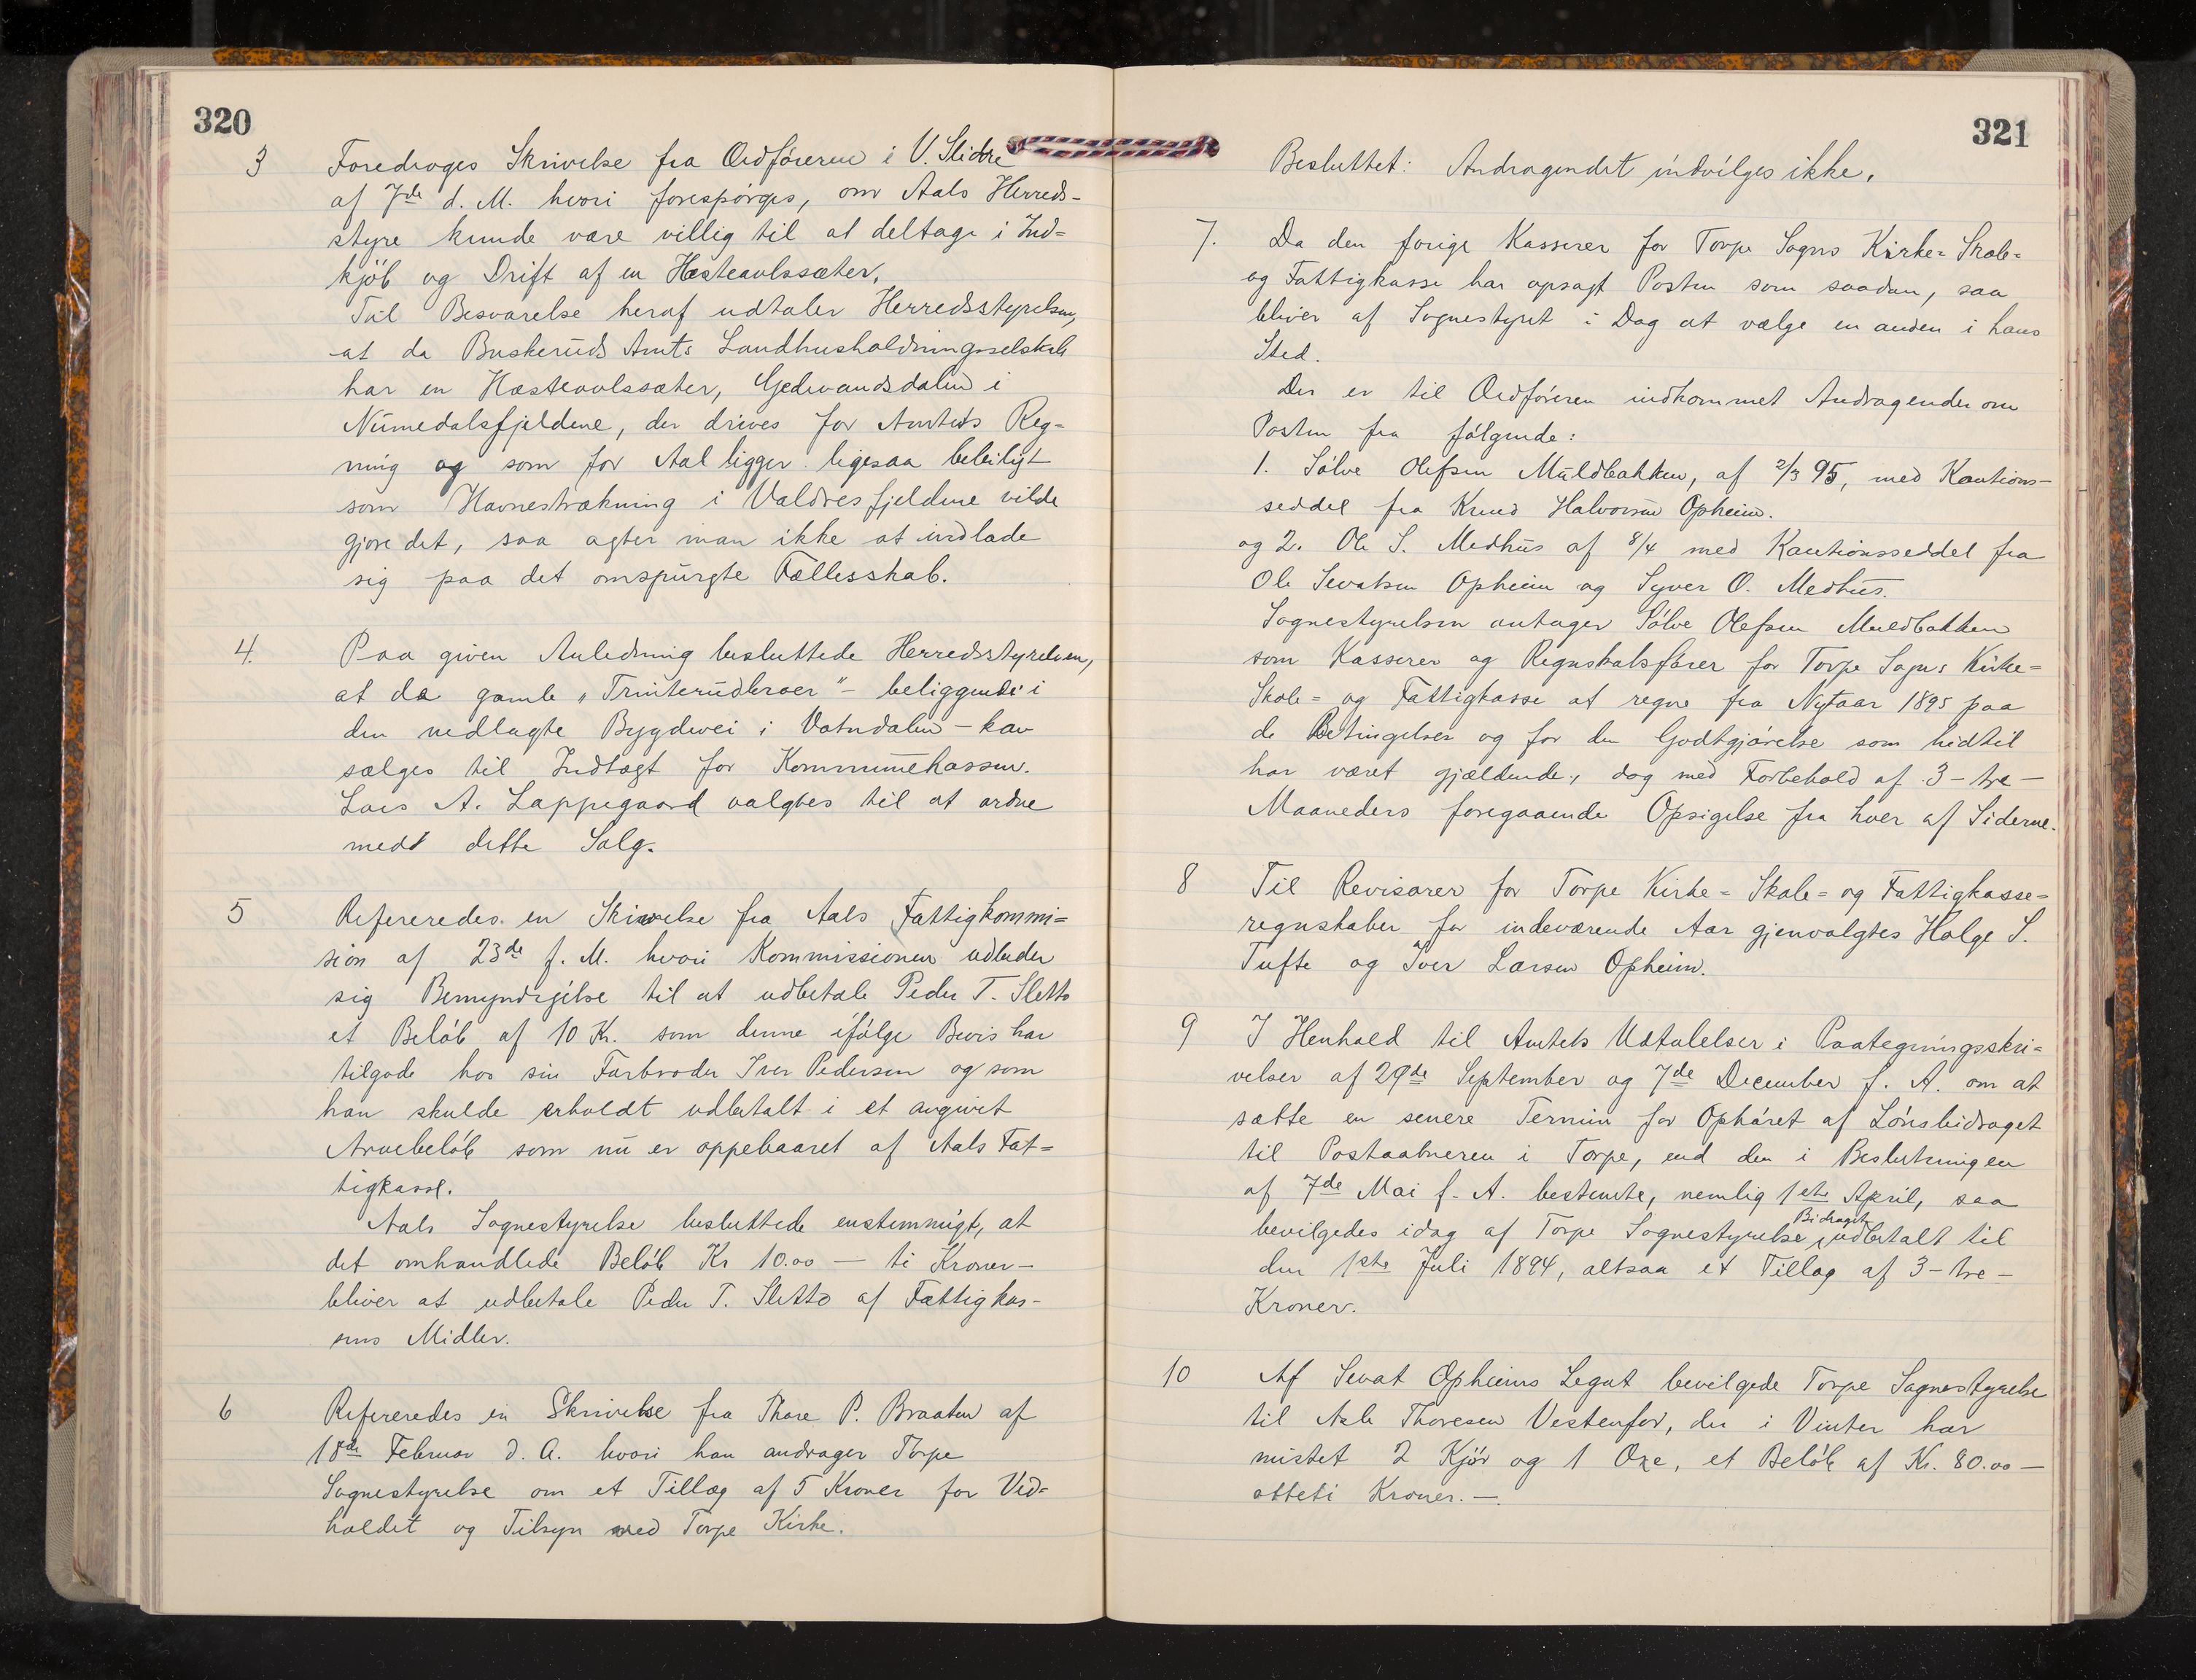 320
3 Foredroges Skrivelse fra Ordføreren i V. Slidre
af 7de d. M. hvori forespørges, om Aals Herreds-
styre kunde være villig til at deltage i Ind=
kjøb og Drift af en Hesteavlssæter.
Til Besvarelse heraf udtaler Herredsstyrelsen,
at da Buskeruds Amts Landhusholdningsselskab
har en Hesteavlssæter, Gjedevandsdalen i
Numedalsfjeldene, der drives for Amtets Reg=
ning og som for Aal ligger ligesaa beleiligt
som Havnestrækning i Valdresfjeldene vilde
gjøre det, saa agter man ikke at indlade
sig paa det omspurgte Fællesskab.
4. Paa given Anledning besluttede Herredsstyrelsen,
at da gamle „Trinterudbroer" - beliggende i
den nedlagte Bygdevei i Vatndalen - kan
sælges til Indtægt for Kommunekassen.
Lars A. Lappegaard valgtes til at ordne
medt dette Salg.
5 Refereredes en Skrivelse fra Aals Fattigkommi=
sion af 23de f. M. hvori Kommissionen udbeder
sig Bemyndigelse til at udbetale Peder T. Sletto
et Beløb af 10 Kr. som denne ifølge Bevis har
tilgode hos sin Farbroder Iver Pedersen og som
han skulde erholdt udbetalt i et angivet
Arvebeløb som nu er oppebaaret af Aals Fat=
tigkasse.
Aals Sognestyrelse besluttede enstemmigt, at
det omhandlede Beløb Kr 10.00 — ti Kroner —
bliver at udbetale Peder T. Sletto af Fattigkas-
sens Midler.
6 Refereredes en Skrivelse fra Thore P. Braaten af
18de Februar d. A. hvori han andrager Torpe
Sognestyrelse om et Tillæg af 5 Kroner for Ved=
holdet og Tilsyn med Torpe Kirke.
321
Besluttet: Andragendet indvilges ikke.
7. Da den forige Kasserer for Torpe Sogns Kirke= Skole=
og Fattigkasse har opsagt Posten som saadan, saa
bliver af Sognestyret i Dag at vælge en anden i hans
Sted.
Der er til Ordføreren indkommet Andragender om
Posten fra følgende:
1. Sølve Olefsen Muldbakken, af 2/3 95, med Kautions-
seddel fra Knud Halvorsen Opheim.
og 2. Ole S. Medhus af 8/4 med Kautionsseddel fra
Ole Sevatsen Opheim og Syver O. Medhus.
Sognestyrelsen antager Sølve Olefsen Muldbakken
som Kasserer og Regnskabsfører for Torpe Sogns Kirke=
Skole= og Fattigkasse at regne fra Nytaar 1895 paa
de Betingelser og for den Godtgjørelse som hidtil
har været gjældende, dog med Forbehold af 3 - tre -
Maaneders foregaaende Opsigelse fra hver af Siderne.
8 Til Revisorer for Torpe Kirke= Skole= og Fattigkasse=
regnskaber for indeværende Aar gjenvalgtes Holge S.
Tufte og Iver Larsen Opheim.
9 I Henhold til Amtets Udtalelser i Paategningsskri=
velser af 29de September og 7de December f. A. om at
sætte en senere Termin for Ophøret af Lønsbidraget
til Postaabneren i Torpe, end den i Beslutningen
af 7de Mai f. A. bestemte, nemlig 1ste April, saa
bevilgedes idag af Torpe Sognestyrelse Bidraget udbetalt til
den 1ste Juli 1894, altsaa et Tillæg af 3 - tre -
Kroner.
10 Af Sevat Opheims Legat bevilgede Torpe Sognestyrelse
til Asle Thoresen Vestenfor, der i Vinter har
mistet 2 Kjør og 1 Oxe, et Beløb af Kr. 80.00 —
otteti Kroner. —